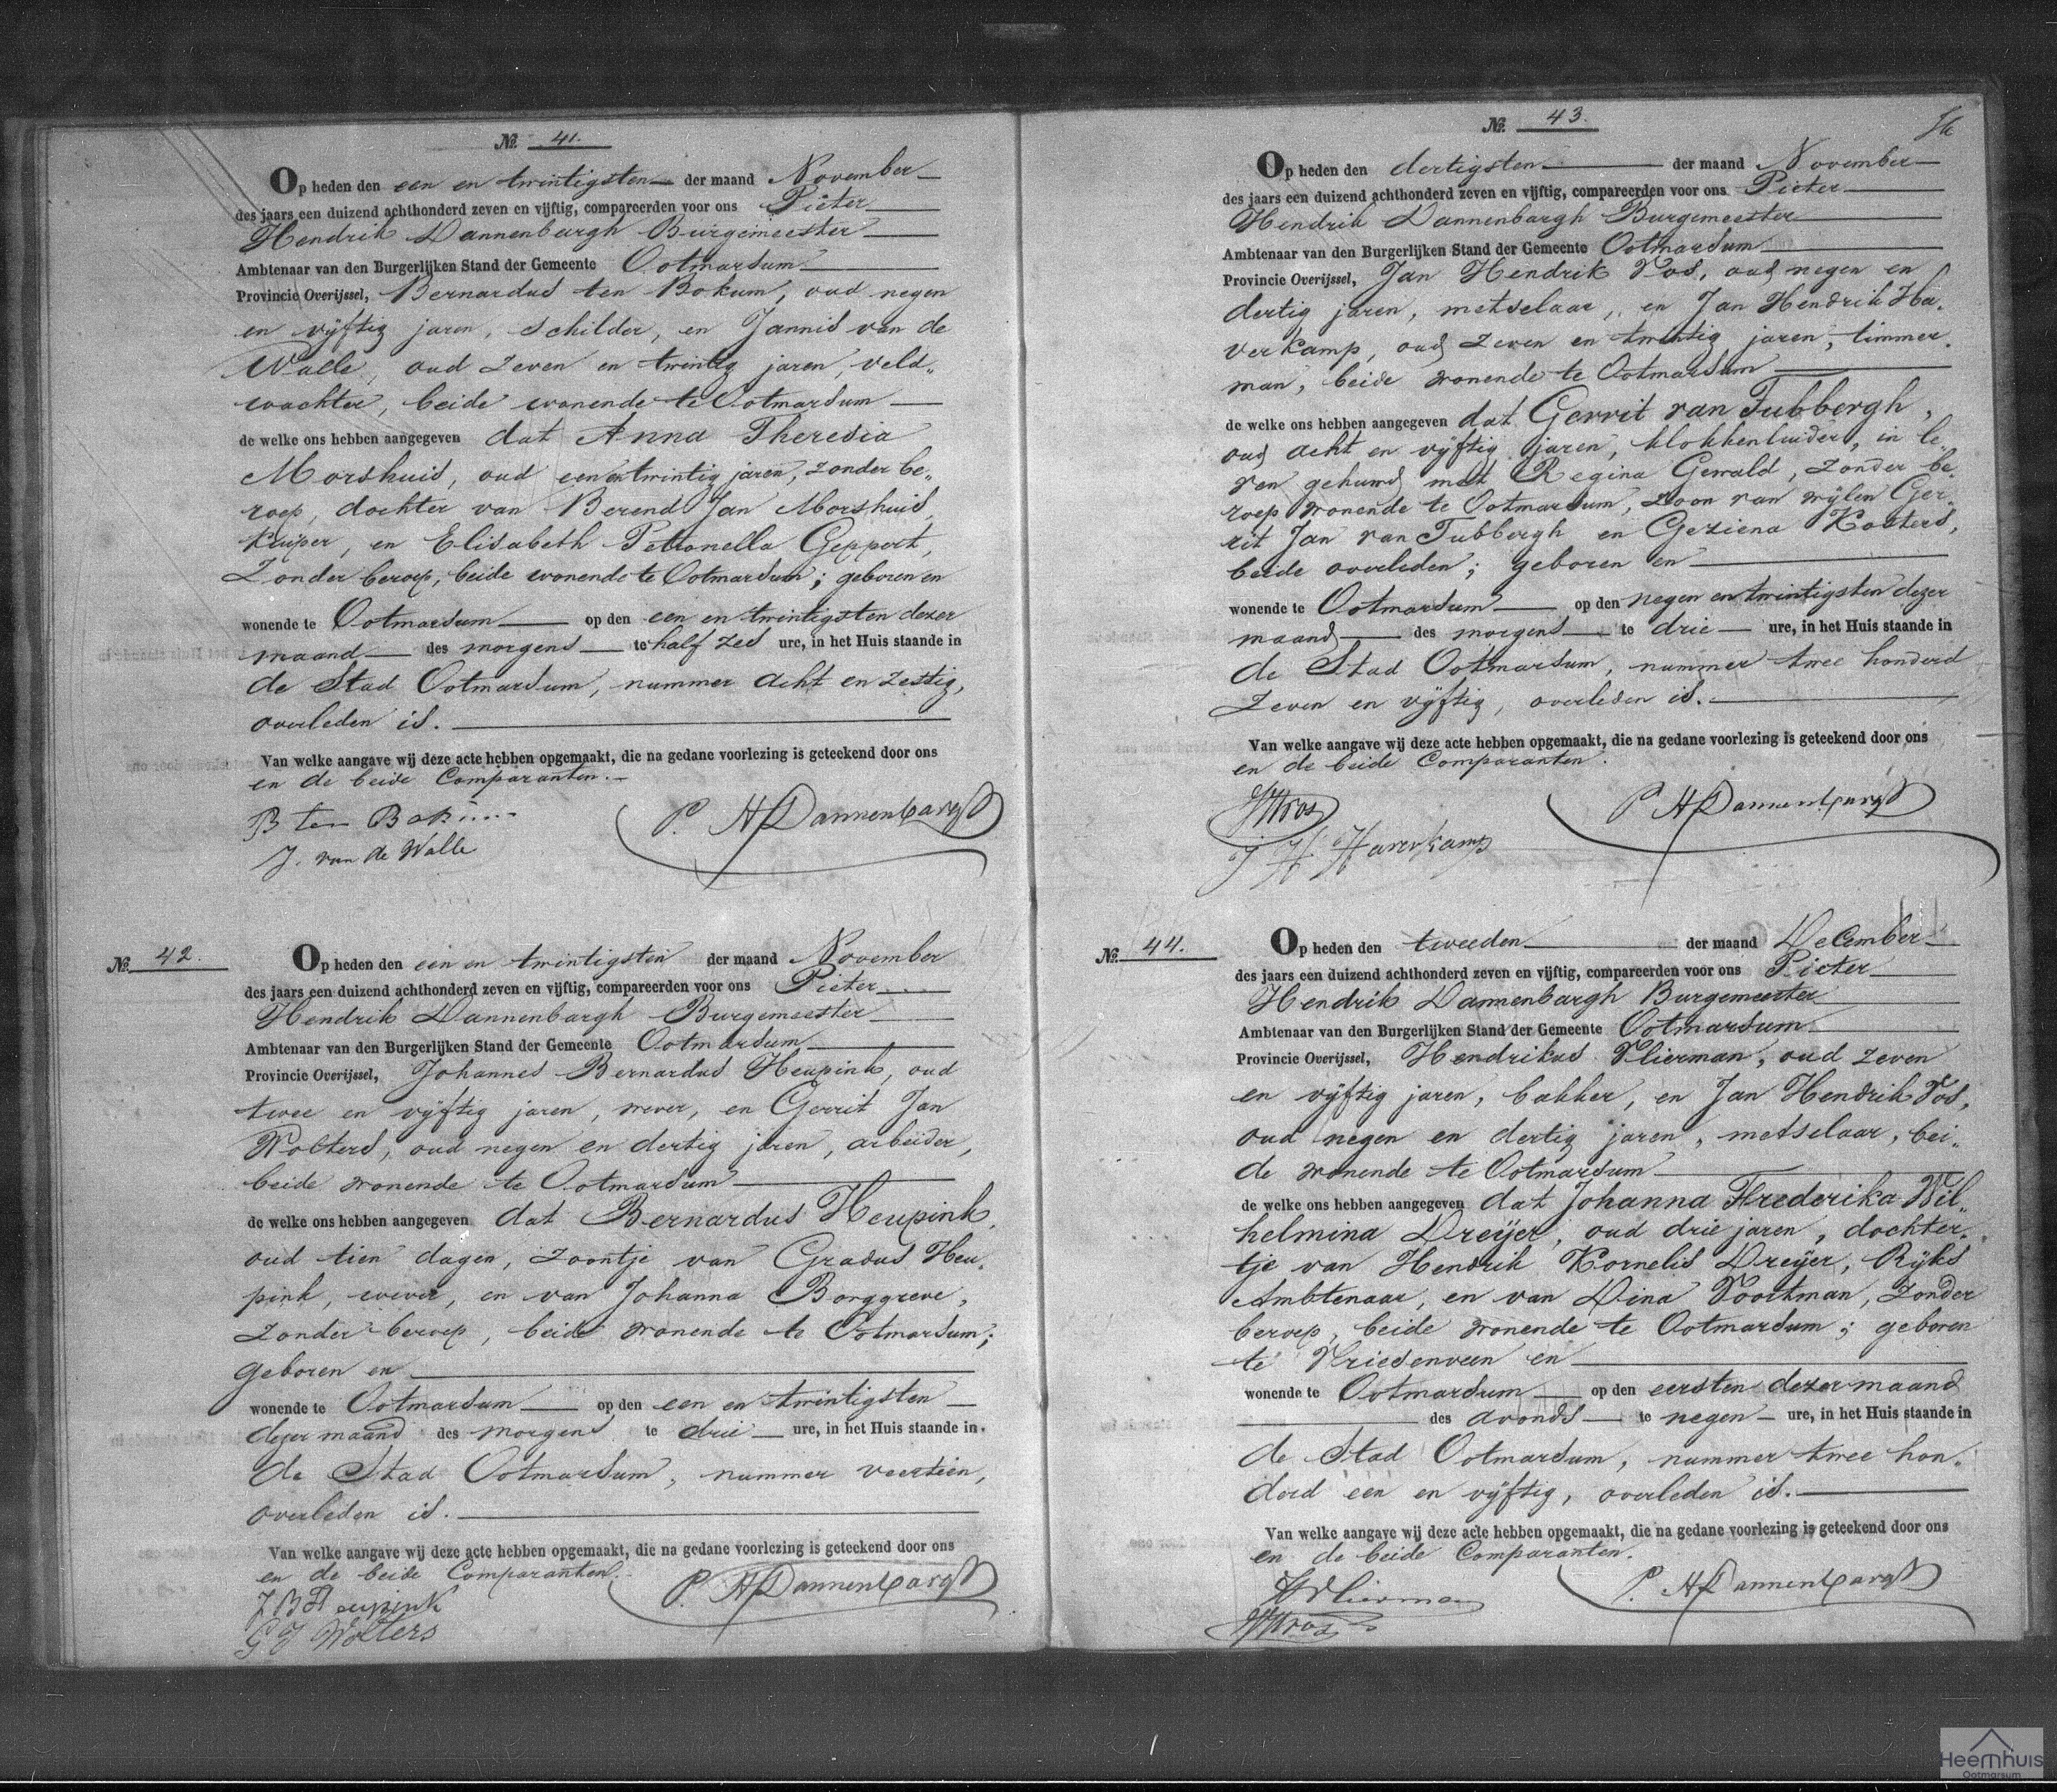 № 41.
Op heden den een en twintigsten der maand November
des jaars een duizend achthonderd zeven en vijftig, compareerden voor ons Pieter
Hendrik Dannenbargh Burgemeester
Ambtenaar van den Burgerlijken Stand der Gemeente Ootmarsum
Provincie Overijssel, Bernardus ten Bokum, oud negen
en vijftig jaren, schilder, en Jannis van de
Walle, oud zeven en twintig jaren, veld„
wachter, beide wonende te Ootmarsum
de welke ons hebben aangegeven dat Anna Theresia
Morshuis, oud een en twintig jaren, zonder be„
roep, dochter van Berend Jan Morshuis,
kuiper, en Elisabeth Petronella Geppert,
zonder beroep, beide wonende te Ootmarsum; geboren en
wonende te Ootmarsum op den een en twintigsten dezer
maand des morgens te half zes ure, in het Huis staande in
de Stad Ootmarsum, nummer acht en zestig,
overleden is.
Van welke aangave wij deze acte hebben opgemaakt, die na gedane voorlezing is geteekend door ons
en de beide Comparanten.
B ten Bokum
P. H Dannenbargh
J. van de Walle
№ 42.
Op heden den een en twintigsten der maand November
des jaars een duizend achthonderd zeven en vijftig, compareerden voor ons Pieter
Hendrik Dannenbargh Burgemeester
Ambtenaar van den Burgerlijken Stand der Gemeente Ootmarsum
Provincie Overijssel, Johannes Bernardus Heupink, oud
twee en vijftig jaren, wever, en Gerrit Jan
Wolters, oud negen en dertig jaren, arbeider,
beide wonende te Ootmarsum
de welke ons hebben aangegeven dat Bernardus Heupink,
oud tien dagen, zoontje van Gradus Heu„
pink, wever, en van Johanna Borggreve,
zonder beroep, beide wonende te Ootmarsum;
geboren en
wonende te Ootmarsum op den een en twintigsten
dezer maand des morgens te drie ure, in het Huis staande in
de Stad Ootmarsum, nummer veertien,
overleden is.
Van welke aangave wij deze acte hebben opgemaakt, die na gedane voorlezing is geteekend door ons
en de beide Comparanten.
J B Heupink
P. H Dannenbargh
G J Wolters
№ 43.
Op heden den dertigsten der maand November
des jaars een duizend achthonderd zeven en vijftig, compareerden voor ons Pieter
Hendrik Dannenbargh Burgemeester
Ambtenaar van den Burgerlijken Stand der Gemeente Ootmarsum
Provincie Overijssel, Jan Hendrik Vos, oud negen en
dertig jaren, metselaar, en Jan Hendrik Ha„
verkamp, oud zeven en twintig jaren, timmer„
man, beide wonende te Ootmarsum
de welke ons hebben aangegeven dat Gerrit van Tubbergh,
oud acht en vijftig jaren, klokkenluider, in le„
ven gehuwd met Regina Gewald, zonder be„
roep wonende te Ootmarsum, zoon van wijlen Ger„
rit Jan van Tubbergh en Geziena Kosters,
beide overleden; geboren en
wonende te Ootmarsum op den negen en twintigsten dezer
maand des morgens te drie ure, in het Huis staande in
de Stad Ootmarsum, nummer twee honderd
zeven en vijftig, overleden is.
Van welke aangave wij deze acte hebben opgemaakt, die na gedane voorlezing is geteekend door ons
en de beide Comparanten.
JHVos
P. H Dannenbargh
J. H. Haverkamp
№ 44.
Op heden den tweeden der maand December
des jaars een duizend achthonderd zeven en vijftig, compareerden voor ons Pieter
Hendrik Dannenbargh Burgemeester
Ambtenaar van den Burgerlijken Stand der Gemeente Ootmarsum
Provincie Overijssel, Hendrikus Vlierman, oud zeven
en vijftig jaren, bakker, en Jan Hendrik Vos,
oud negen en dertig jaren, metselaar, bei„
de wonende te Ootmarsum
de welke ons hebben aangegeven dat Johanna Frederika Wil„
helmina Dreijer, oud drie jaren, dochter„
tje van Hendrik Kornelis Dreijer, Rijks
Ambtenaar, en van Dina Voortman, zonder
beroep, beide wonende te Ootmarsum; geboren
te Vriesenveen en
wonende te Ootmarsum op den eersten dezer maand
des avonds te negen ure, in het Huis staande in
de Stad Ootmarsum, nummer twee hon„
derd een en vijftig, overleden is.
Van welke aangave wij deze acte hebben opgemaakt, die na gedane voorlezing is geteekend door ons
en de beide Comparanten.
H Vlierman
P. H Dannenbargh
JHVos
Heemhuis
Ootmarsum